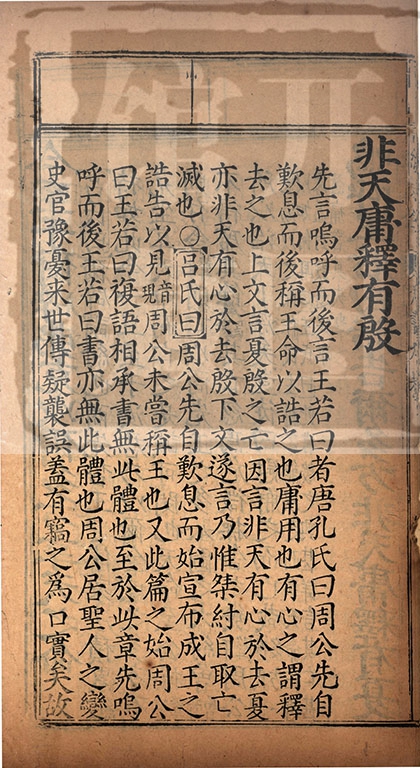 非天庸釋有殷
先言嗚呼而後言王若曰者唐孔氏曰周公先自
歎息而後稱王命以誥之也庸用也有心之謂釋
去之也上文言夏殷之亡因言非天有心於去夏
亦非天有心於去殷下文遂言乃惟桀紂自取亡
滅也○呂氏曰周公先自歎息而始宣布成王之
誥告以見音現周公未嘗稱王也又此篇之始周公
曰王若曰複語相承書無此體也至於此章先嗚
呼而後王若曰書亦無此體也周公居聖人之變
史官豫憂来世傳疑襲誤蓋有竊之為口實矣故